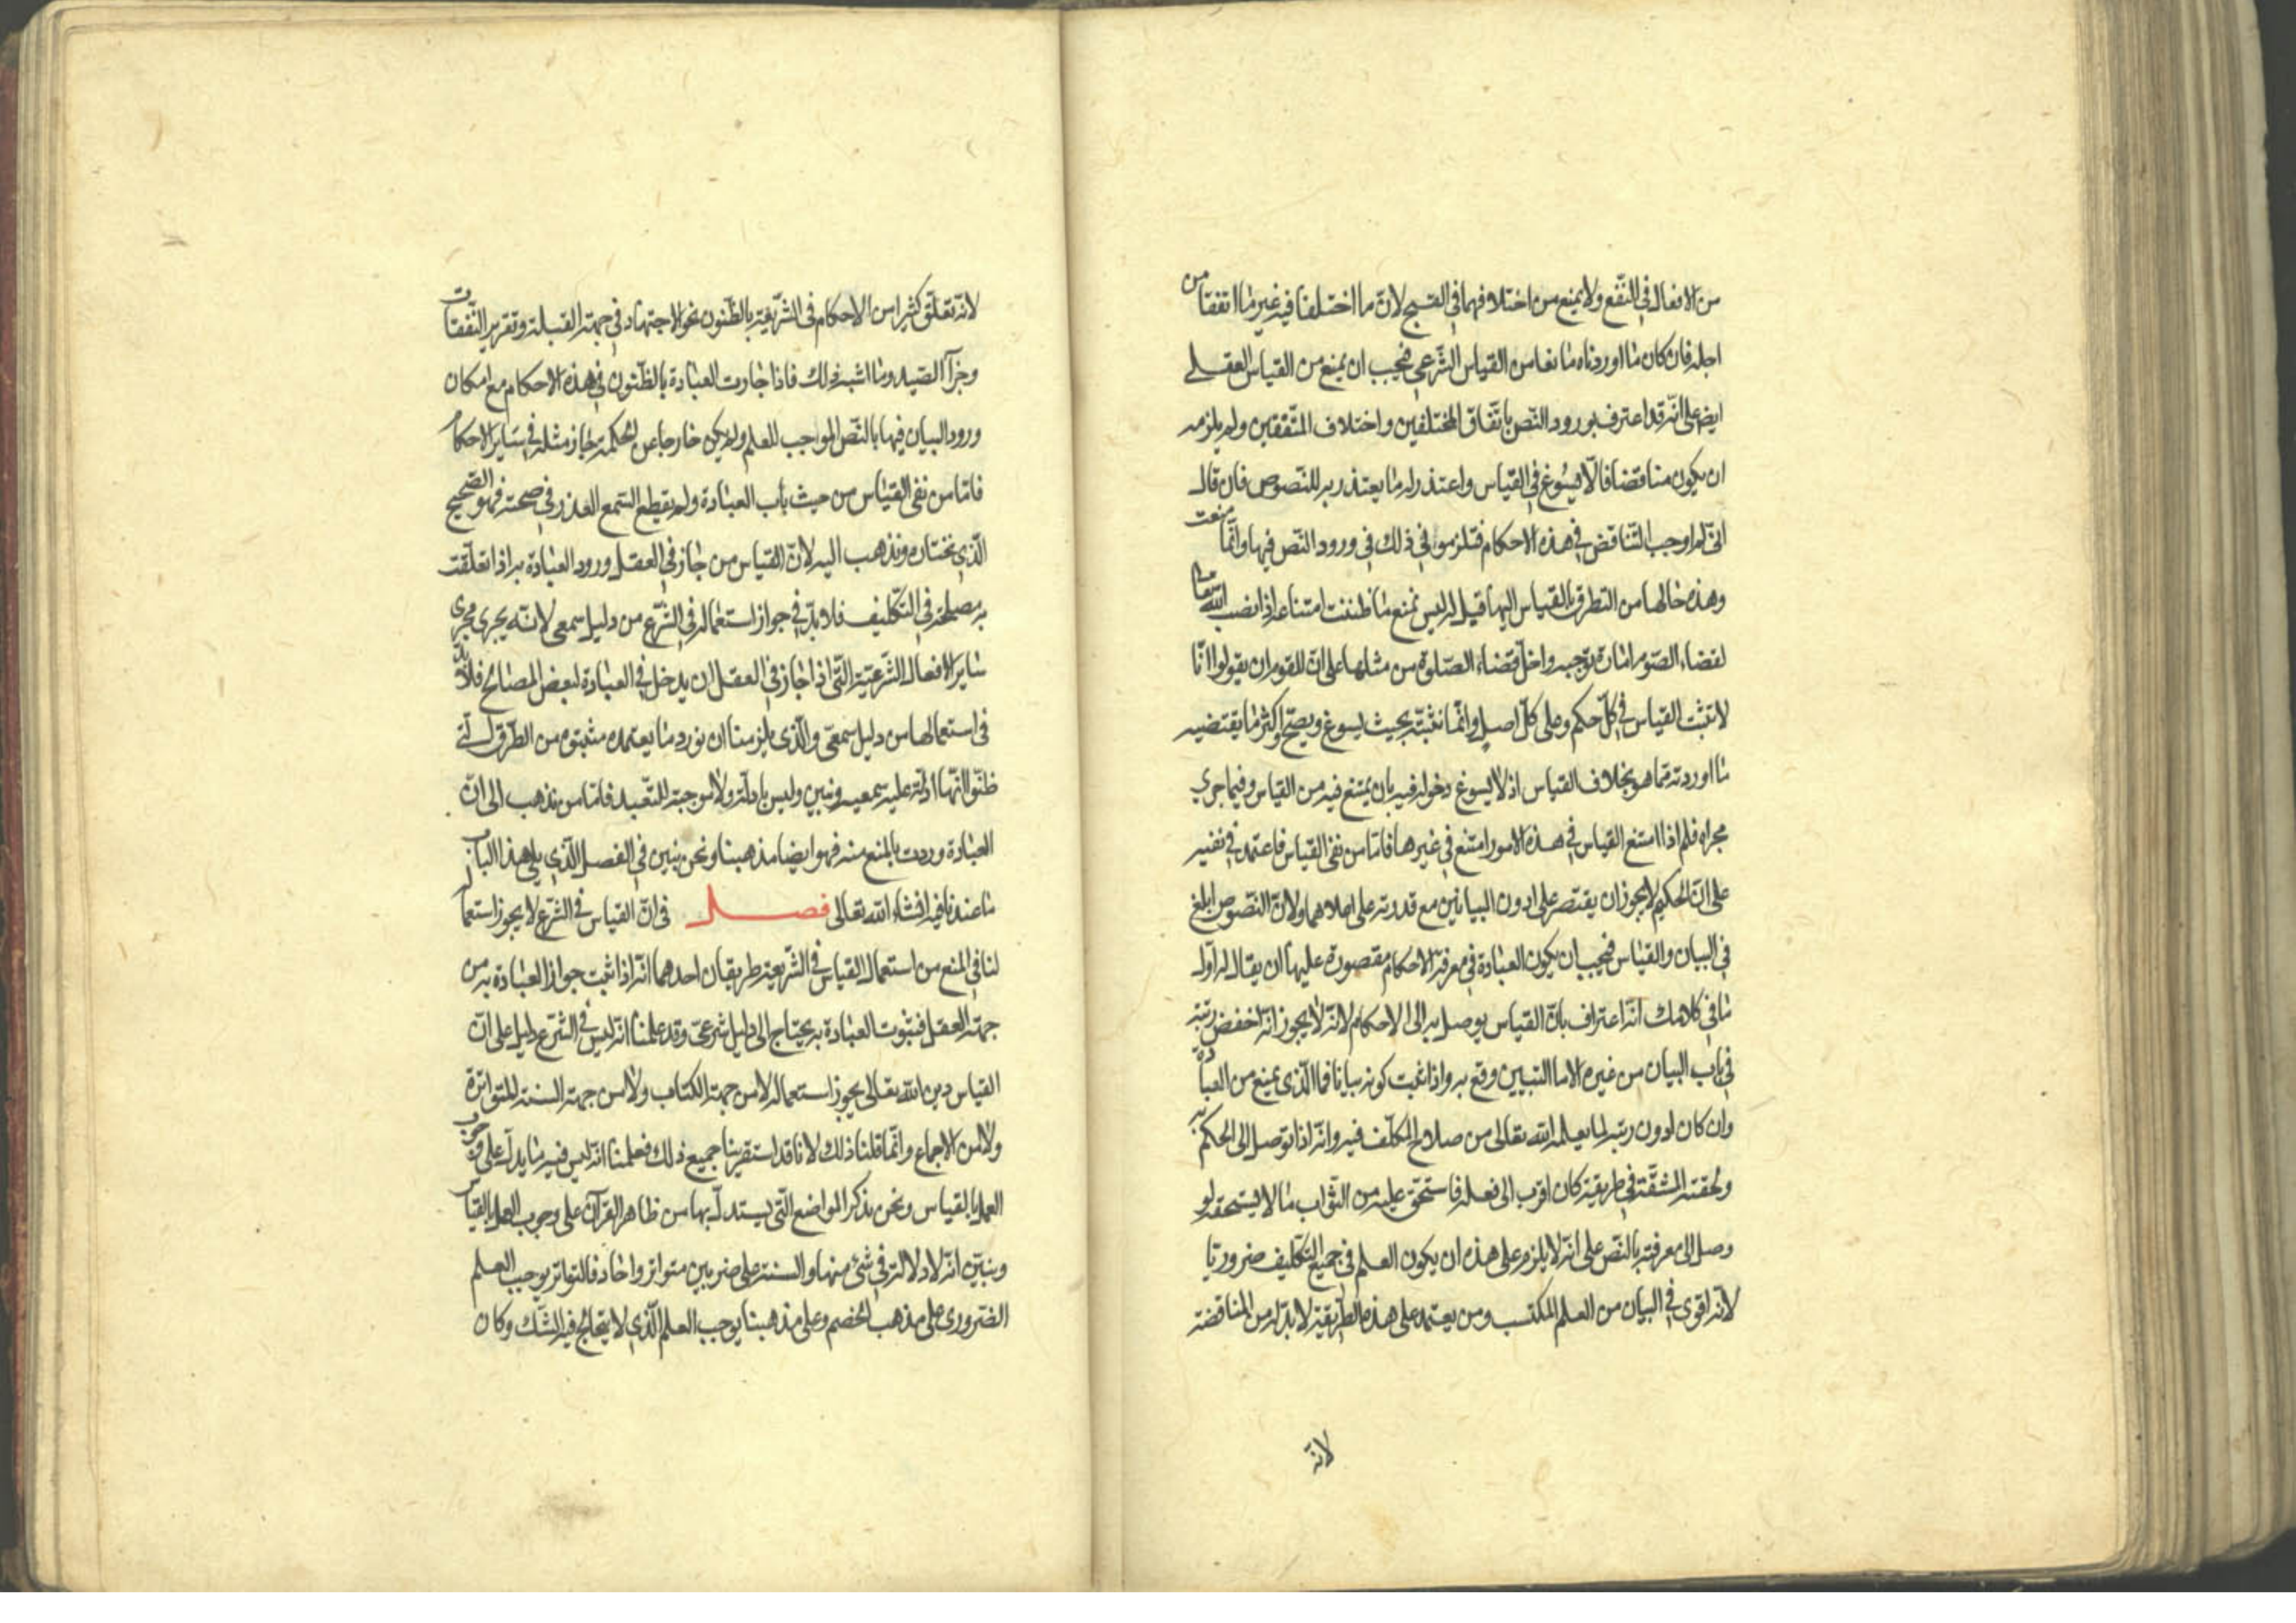 من الافعال في النفع ولا يمنع من اختلافهما في القبح لان ما اختلفا فيه غير ما اتفقا من
اجله فان كان ما اوردناه مانعا من القياس الشرعي فيجب ان يمنع من القياس العقلي
ايضا على انه قد اعترف بورود النص باتفاق المختلفين واختلاف المتفقين ولم يلزمه
ان يكون مناقضا فالا فيسوغ في القياس واعتذر له ما يعتذر به للنصوص فان قال
انى لم اوجب التناقض في هذه الاحكام فتلزموني ذلك في ورود النص فيها وانما منعت
وهذه حالها من التطرق بالقياس اليها قيل له ليس يمنع ما ظننت امتناعه اذا نصب الله تعالى
لقضاء الصوم امارة توجبه واخل قضاء الصلوة من مثلها على ان للقوم ان يقولوا انا
لا نثبت القياس في كل حكم وعلى كل اصل وانما نثبته بحيث يسوغ ويصح اكثر ما يقتضيه
ما اوردته مما هو بخلاف القياس اذ لا يسوغ دخوله فيه بان يمتنع فيه من القياس وفيما جرى
مجراه فلم اذا امتنع القياس في هذه الامور امتنع في غيرها فاما من نفى القياس فاعتمد في نفيه
على ان الحكيم لا يجوز ان يقتصر على ادون البيانين مع قدرته على اعلاهما ولان النصوص ابلغ
في البيان والقياس فيجب ان يكون العبادة في معرفة الاحكام مقصورة عليها ان يقال له اول
ما في كلامك انه اعتراف بان القياس يوصل به الى الاحكام لانه لا يجوز انه اخفض رتبة
في باب البيان من غيره الا ما التبيين وقع به واذا ثبت كونه بيانا فما الذي يمنع من العبادة
وان كان ادون رتبة لما يعلمه الله تعالى من صلاح المكلف فيه وانه اذا توصل الى الحكم به
ولحقته المشقة في طريقه كان اقرب الى فعله فاستحق عليه من الثواب ما لا يستحقه لو
وصل الى معرفته بالنص على انه لا يلزم على هذه ان يكون العلم في جميع التكليف ضروريا
لانه اقوى في البيان من العلم المكتسب ومن يعتمد على هذه الطريقة لا بد له من المناقضة
لانه
لانه تعلق كثيرا من الاحكام في الشرعية بالظنون نحو الاجتهاد في جهة القبلة وتقدير النفقات
وجزآ الصيد وما اشبه ذلك فاذا جازت العبادة بالظنون في هذه الاحكام مع امكان
ورود البيان فيها بالنص الموجب للعلم ولم يكن خارجا عن الحكمة جاز مثله في ساير الاحكام
فاما من نفى القياس من حيث باب العبادة ولم يقطع السمع العذر في صحته فهو الصحيح
الذي نختاره ونذهب اليه لان القياس من جاز في العقل ورود العبادة به اذا تعلقت
به مصلحة في التكليف فلا بد في جواز استعماله في الشرع من دليل سمعي لانه يجرى مجرى
ساير الافعال الشرعية التي اذا جاز في العقل ان يدخل في العبادة لبعض المصالح فلا بد
في استعمالها من دليل سمعي والذي يلزمنا ان نورد ما يعتمده مثبتوه من الطرق التي
ظنوا انها ادلة عليه سمعيه ونبين وليس بادلة ولا موجبة للتعبد فاما من يذهب الى ان
العبادة وردت بالمنع منه فهو ايضا مذهبنا ونحن نبين في الفصل الذي يلي هذا الباب
ما عندنا فيه انشاء الله تعالى فصل في ان القياس في الشرع لا يجوز استعماله
لنا في المنع من استعمال القياس في الشريعة طريقان احدهما انه اذا ثبت جواز العبادة به من
جهة العقل فثبوت العبادة به يحتاج الى دليل شرعي وقد علمنا انه ليس في الشرع دليل على ان
القياس دين الله تعالى يجوز استعماله لا من جهة الكتاب ولا من جهة السنة المتواترة
ولا من الاجماع وانما قلنا ذلك لانا قد استقرينا جميع ذلك فعلمنا انه ليس فيه ما يدل على وجوب
العمل بالقياس ونحن نذكر المواضع التي يستدل بها من ظاهر القرآن على وجوب العمل بالقياس
ونبين انه لا دلالة في شئ منها والسنة على ضربين متواتر واحاد فالتواتر يوجب العلم
الضروري على مذهب الخصم وعلى مذهبنا يوجب العلم الذي لا يتخالج فيه الشك وكان